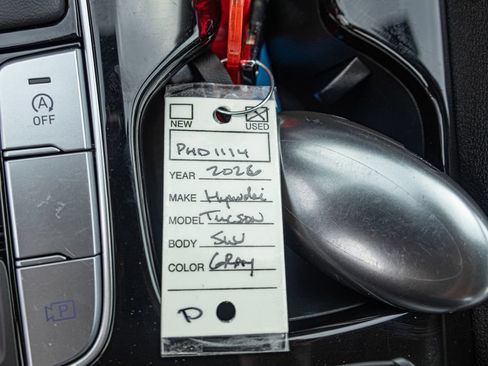 A
OFF
P
NEW USED
PHD1114
YEAR 2026
MAKE Hyundai
MODEL TUCSON
BODY SUV
COLOR GRAY
D